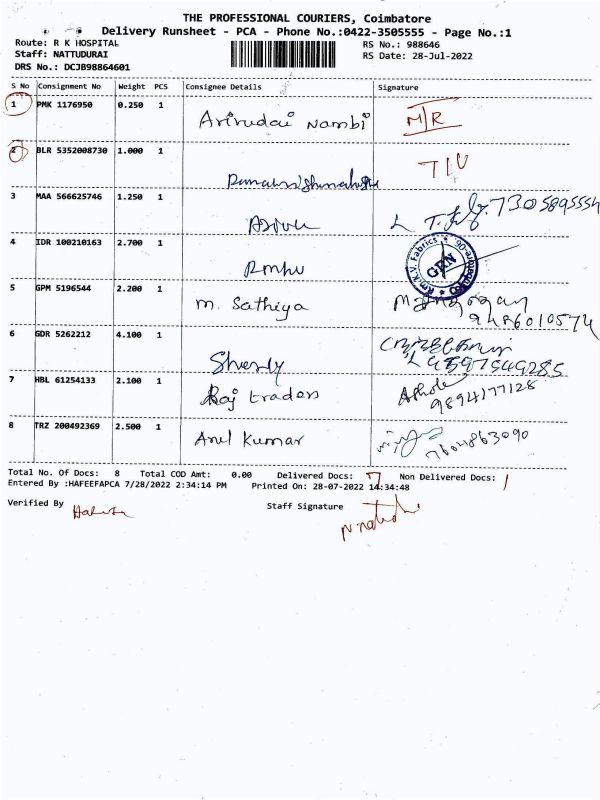 THE PROFESSIONAL COURIERS, Coimbatore
Delivery Runsheet - PCA - Phone No.:0422-3505555 - Page No.:1
Route: R K HOSPITAL
RS No.: 988646
Staff: NATTUDURAI
RS Date: 28-Jul-2022
DRS No.: DCJB98864601
S No Consignment No Weight PCS Consignee Details Signature
1 PMK 1176950 0.250 1 Arirudai Nambi M/R
2 BLR 5352008730 1.000 1
3 MAA 566625746 1.250 1 7305895554
4 IDR 100210163 2.700 1 Rm.K.V. Fabrics GEN
5 GPM 5196544 2.200 1 M. Sathiya 9486010574
6 GDR 5262212 4.100 1 Sherly
7 HBL 61254133 2.100 1 Raj traders Ashok 9894177128
8 TRZ 200492369 2.500 1 Arul Kumar 7604863090
Total No. Of Docs: 8 Total COD Amt: 0.00 Delivered Docs: 7 Non Delivered Docs: 1
Entered By :HAFEEFAPCA 7/28/2022 2:34:14 PM Printed On: 28-07-2022 14:34:48
Verified By
Staff Signature